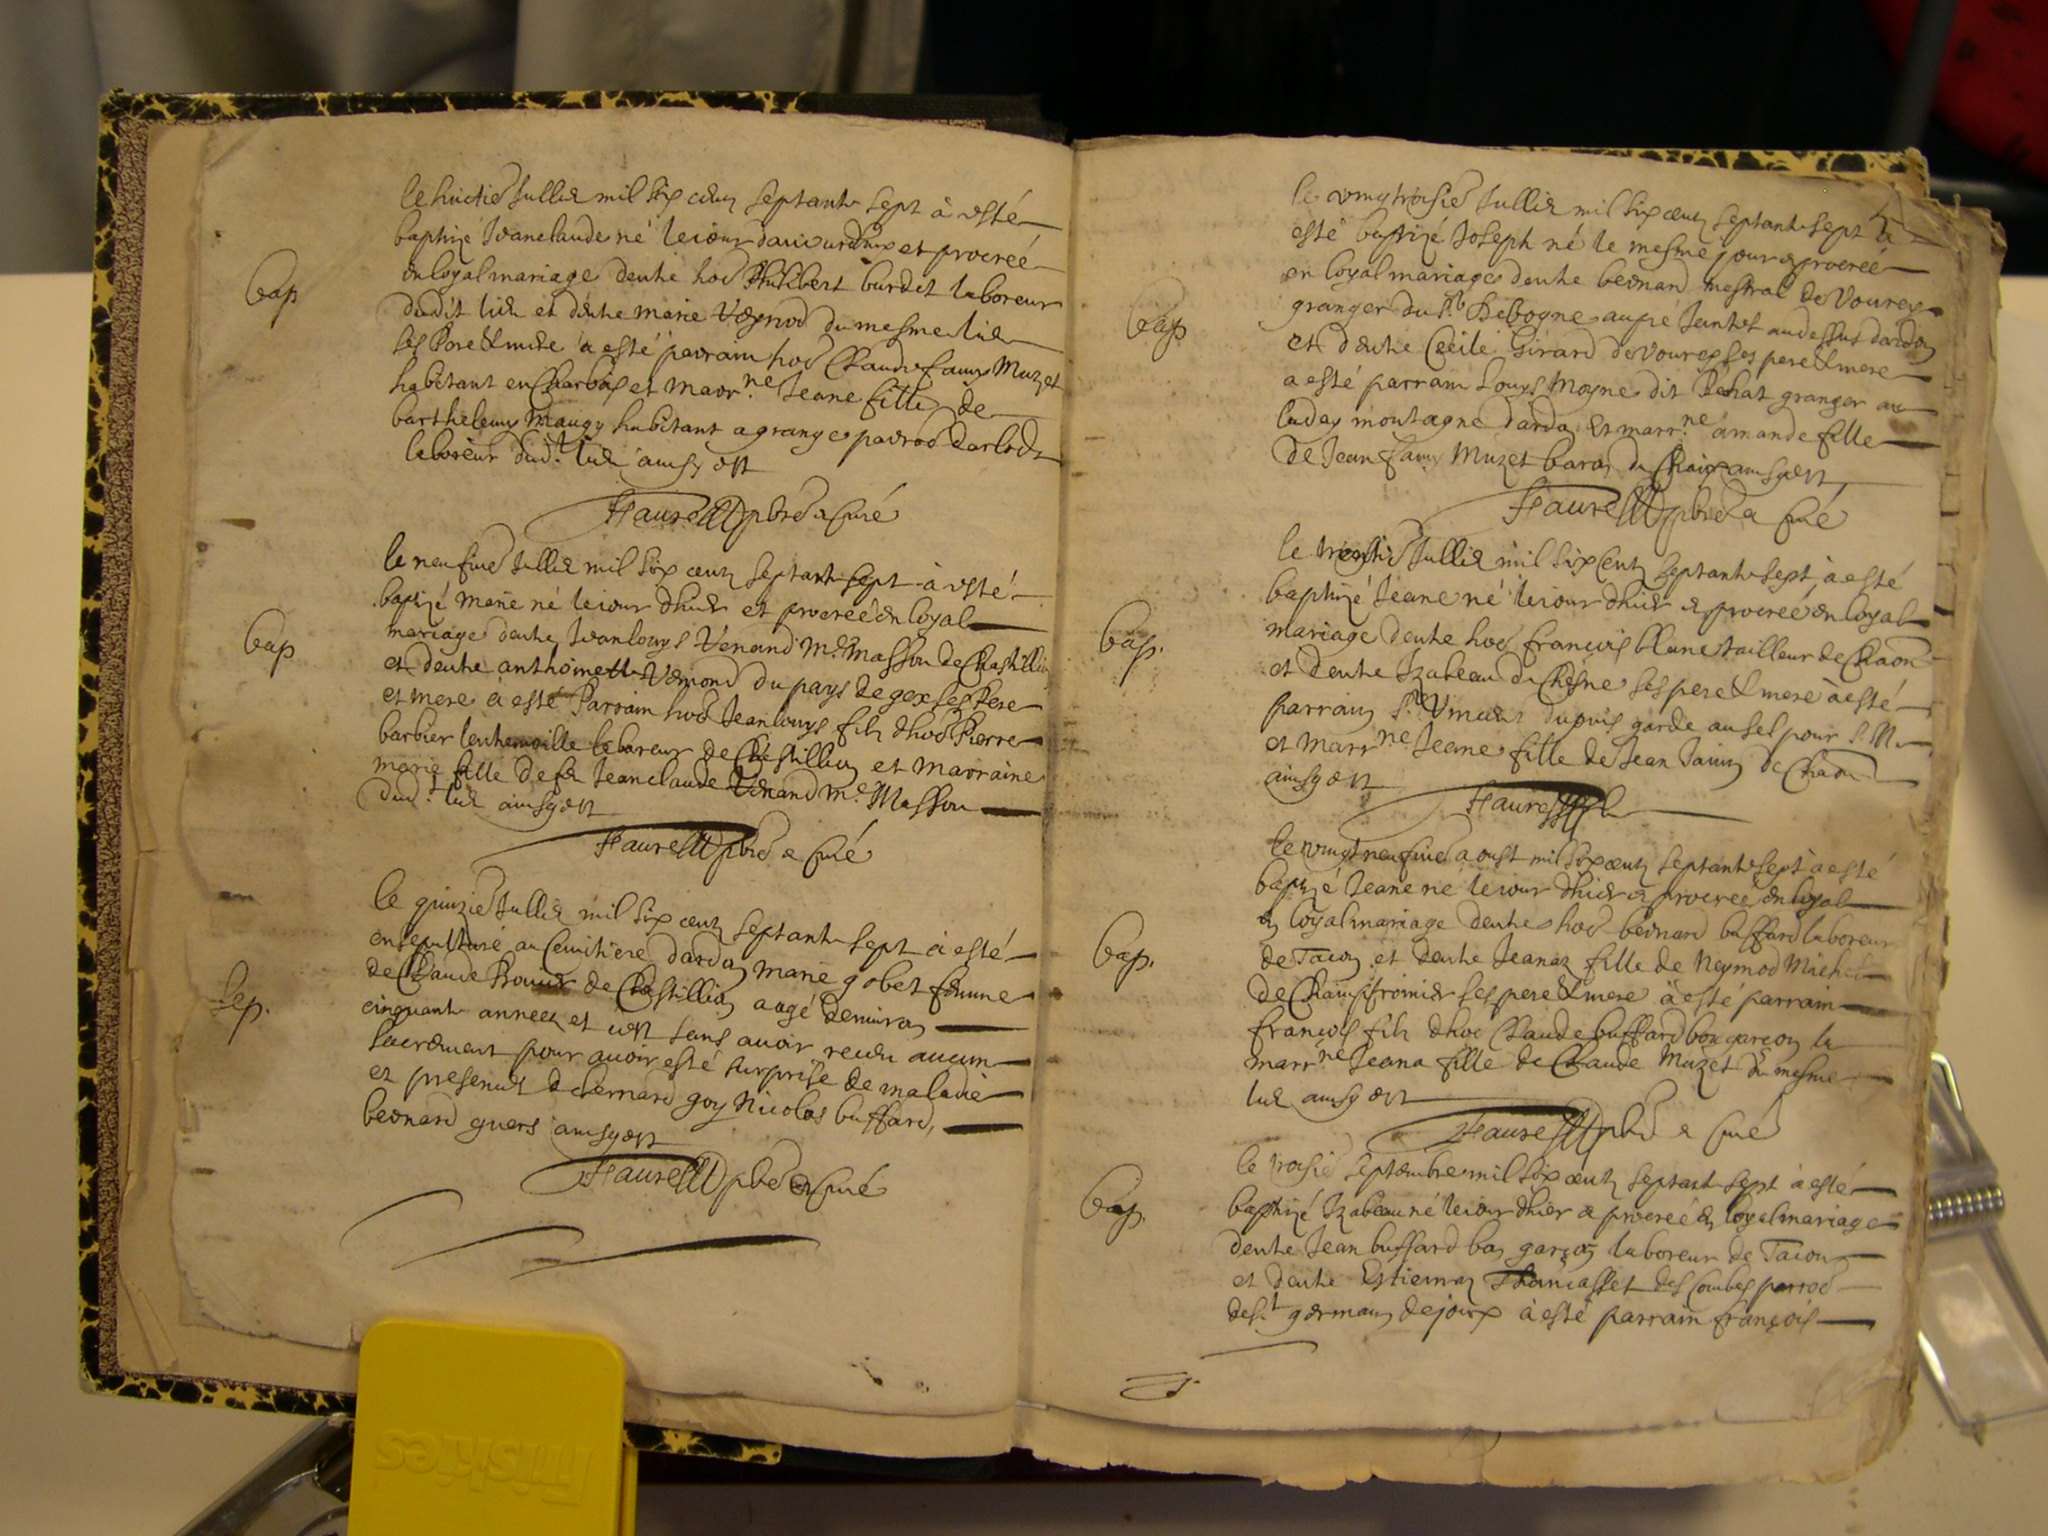 bap
le huictie Jullie mil six cens septante sept à esté
baptizé Jeanclaude né le iour daiourdhuy et procreé
en loyal mariage dentre hoé Philibert burdet laboreur
dudit lieu et dentre marie du mesme lieu
ses Pere & mere a esté parrain hoé Claude Muzet
habitant en et Marr.ne Jeane fille de
barthelemy Maugy habitant a grange
laboreur dud.t lieu ainsy est
Faure pbre & Curé
bap
le neufvie Jullie mil six cens septante sept à esté
baptizé Marie né le iour dhier et procreé en loyal
mariage dentre Jeanlouys Venand M.e Masson de Chastillion
et dentre anthoinette du pays de gex ses Pere
et mere a esté Parrain hoé Jeanlouys filz dhoé Pierre
barbier laboreur de Chestillion et Marraine
marie fille de feu Jeanclaude Venand M.e Masson
dud.t lieu ainsy est
Faure pbre & Curé
Sep.
le quinzie Jullie mil six cens septante sept à esté
ensepulturé au Cemitiere dardon Marie gobet femme
de Claude de Chastillion aagé denviron
cinquante anneez et c'est sans avoir receu aucun
Sacrement pour avoir esté surprise de maladie
et presence de bernard goy Nicolas buffard,
bernard guers ainsy est
Faure pbre & Curé
bap
le vingtroisie Jullie mil six cens septante sept à
esté baptizé Joseph né le mesme jour & procreé
en loyal mariage dentre bernard mestral de Vourey
granger du S.r au pré audessus dardon
et dentre Cecile Girard de Vourey ses pere & mere
a esté parrain Louys Moyne dit granger au
montagne dardon et marr.ne amande fille
de Jean Muzet baron de ainsy est
Faure pbre & Curé
bap.
le Jullie mil six Cens septante sept à esté
baptizé Jeane né le iour dhier & procreé en loyal
mariage dentre hoé françois blanc tailleur de
et dentre Izabeau du Chesne ses pere & mere à esté
parrain S.r Vincent dupuis garde au sel pour S. M.
et marr.ne Jeane fille de Jean de
ainsy est
Faure
bap.
le vingtneufvie aoust mil six cens septante sept à esté
baptizé Jeane né le iour dhier & procreé en loyal
en loyal mariage dentre hoé bernard buffard laboreur
de Tacon et dentre Jeanaz fille de Reymod Michel
de Champfromier ses pere & mere à esté parrain
françois filz dhoé Claude buffard bon garçon la
marr.ne Jeana fille de Claude Muzet du mesme
lieu ainsy est
Faure pbre & Curé
bap.
le troisie septembre mil six cens septante sept à esté
baptizé Izabeau né le iour dhier & procreé en loyal mariage
dentre Jean buffard bon garçon laboreur de Tacon
et dentre Estiennaz des Combes parroé
de S.t germain de joux à esté parrain françois
Friskies